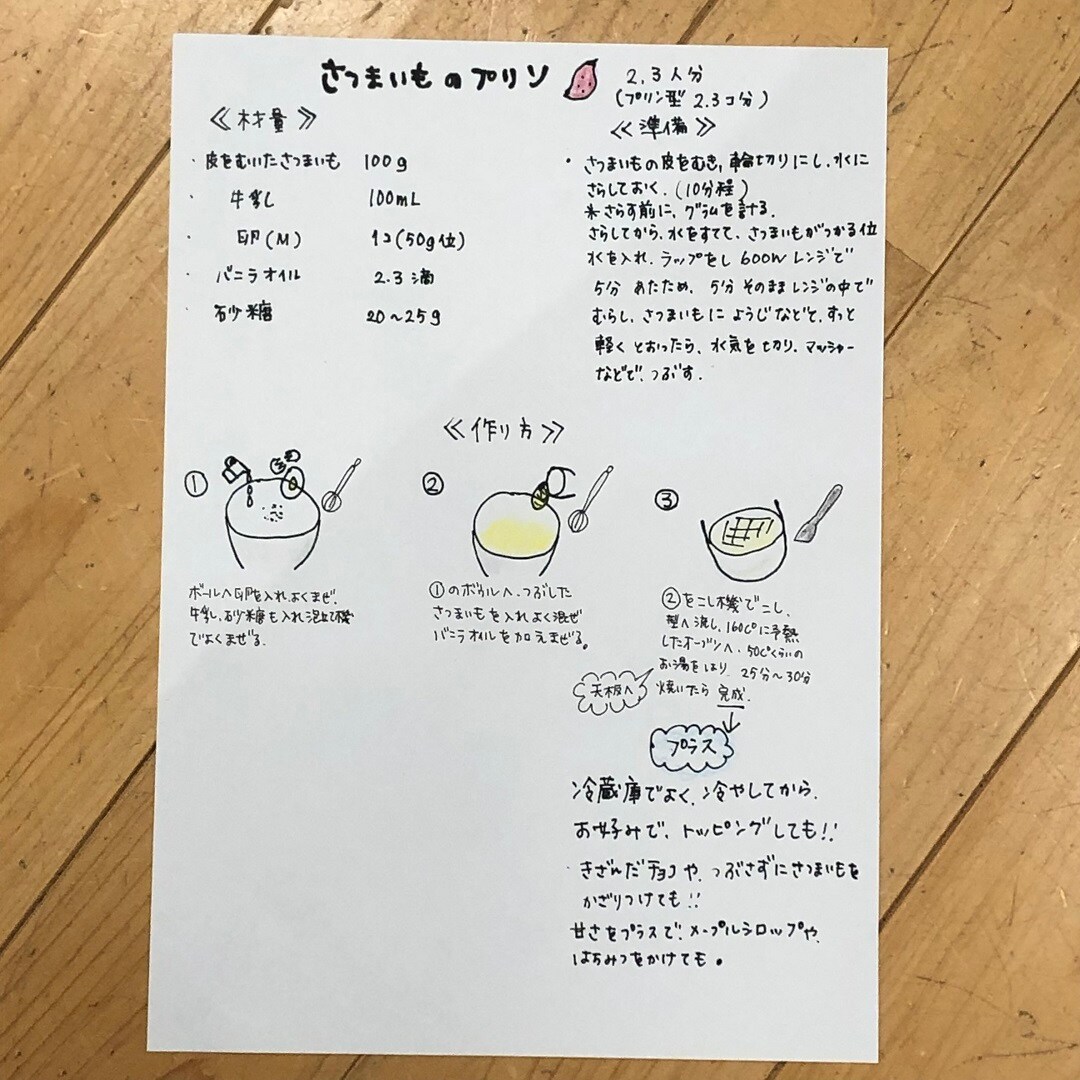 さつまいものプリン
2.3人分
(プリン型 2.3コ分)
≪材量≫
・皮をむいたさつまいも 100g
・牛乳 100mL
・卵(M) 1コ(50g位)
・バニラオイル 2.3滴
・砂糖 20~25g
≪準備≫
・さつまいもの皮をむき,輪切りにし.水に
さらしておく.(10分程)
※さらす前に、グラムを計る.
さらしてから、水をすてて、さつまいもがつかる位
水を入れ.ラップをし 600wレンジで
5分 あたため. 5分 そのままレンジの中で
むらし、さつまいもに ようじなどで、すっと
軽く とおったら、水気を切り.マッシャー
などで、つぶす.
≪作り方≫
①
ボールへ卵を入れ.よくまぜ.
牛乳.砂糖を入れ泡立て機
でよくまぜる.
②
①のボウルへ、つぶした
さつまいもを入れよく混ぜ
バニラオイルを加えまぜる。
③
②をこし機でこし.
型へ流し、160C°に予熱
したオーブンへ.50C°くらいの
お湯をはり、25分~30分
焼いたら 完成.
天板へ
プラス
冷蔵庫でよく、冷やしてから.
お好みで、トッピングしても!!
・きざんだチョコや、つぶさずにさつまいもを
かざりつけても!!
甘さをプラスで、メープルシロップや、
はちみつをかけても。